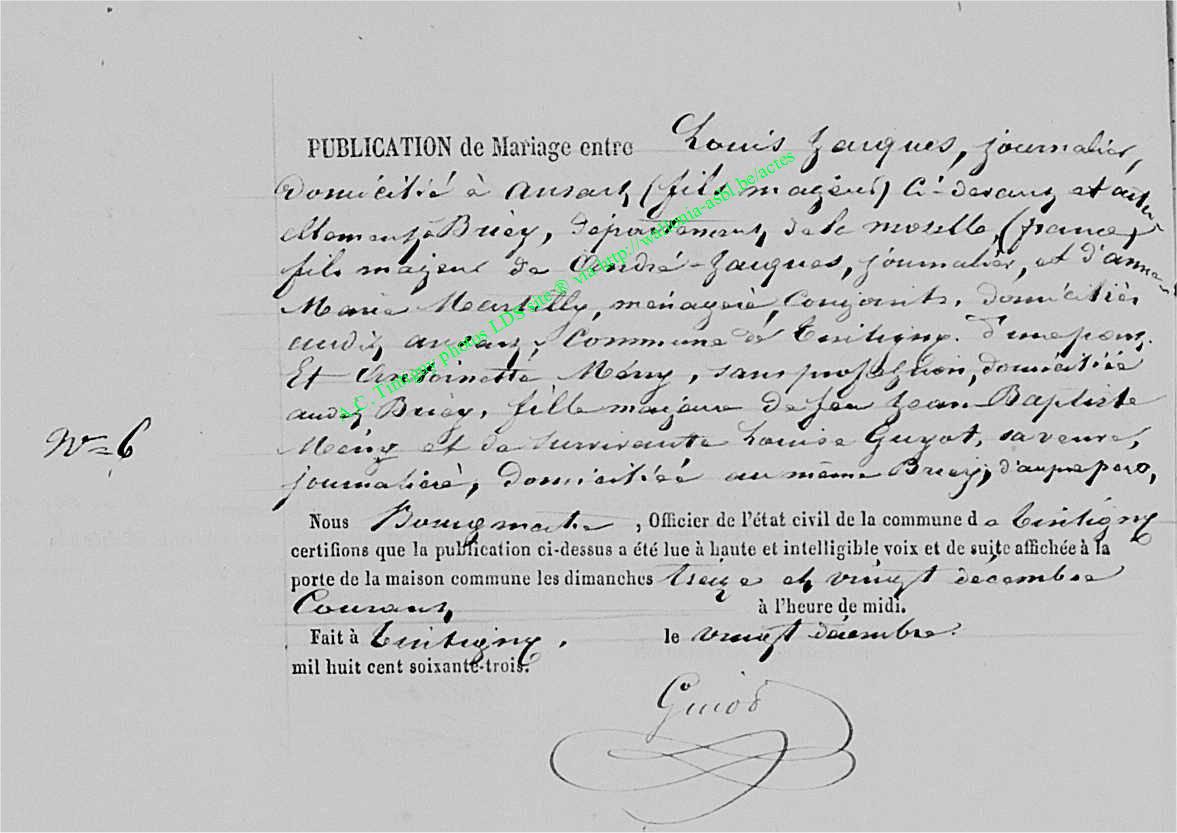 PUBLICATION de Mariage entre Louis Jacques, journalier,
domicilié à ansart, (fils majeur) ci-devant et actu-
ellement à Briey, département de la moselle, (france)
fils majeur de André Jacques, journalier, et d'anne
Marie Martilly, ménagère, conjoints, domiciliés
audit ansart, Commune de Tintigny. d'une part.
Et Antoinette Mény, sans profession, domiciliée
audit Briey, fille majeure de feu Jean-Baptiste
Mény et de survivante Louise Guyot, sa veuve,
journalière, domiciliée au même Briey, d'autre part,
N° 6
Nous Bourgmestre, Officier de l'état civil de la commune de Tintigny
certifions que la publication ci-dessus a été lue à haute et intelligible voix et de suite affichée à la
porte de la maison commune les dimanches treize et vingt décembre
Courant, à l'heure de midi.
Fait à Tintigny, le vingt décembre.
mil huit cent soixante-trois.
Guiot
A.C. Tintigny photos LDS site® via http://wallonia-asbl.be/actes